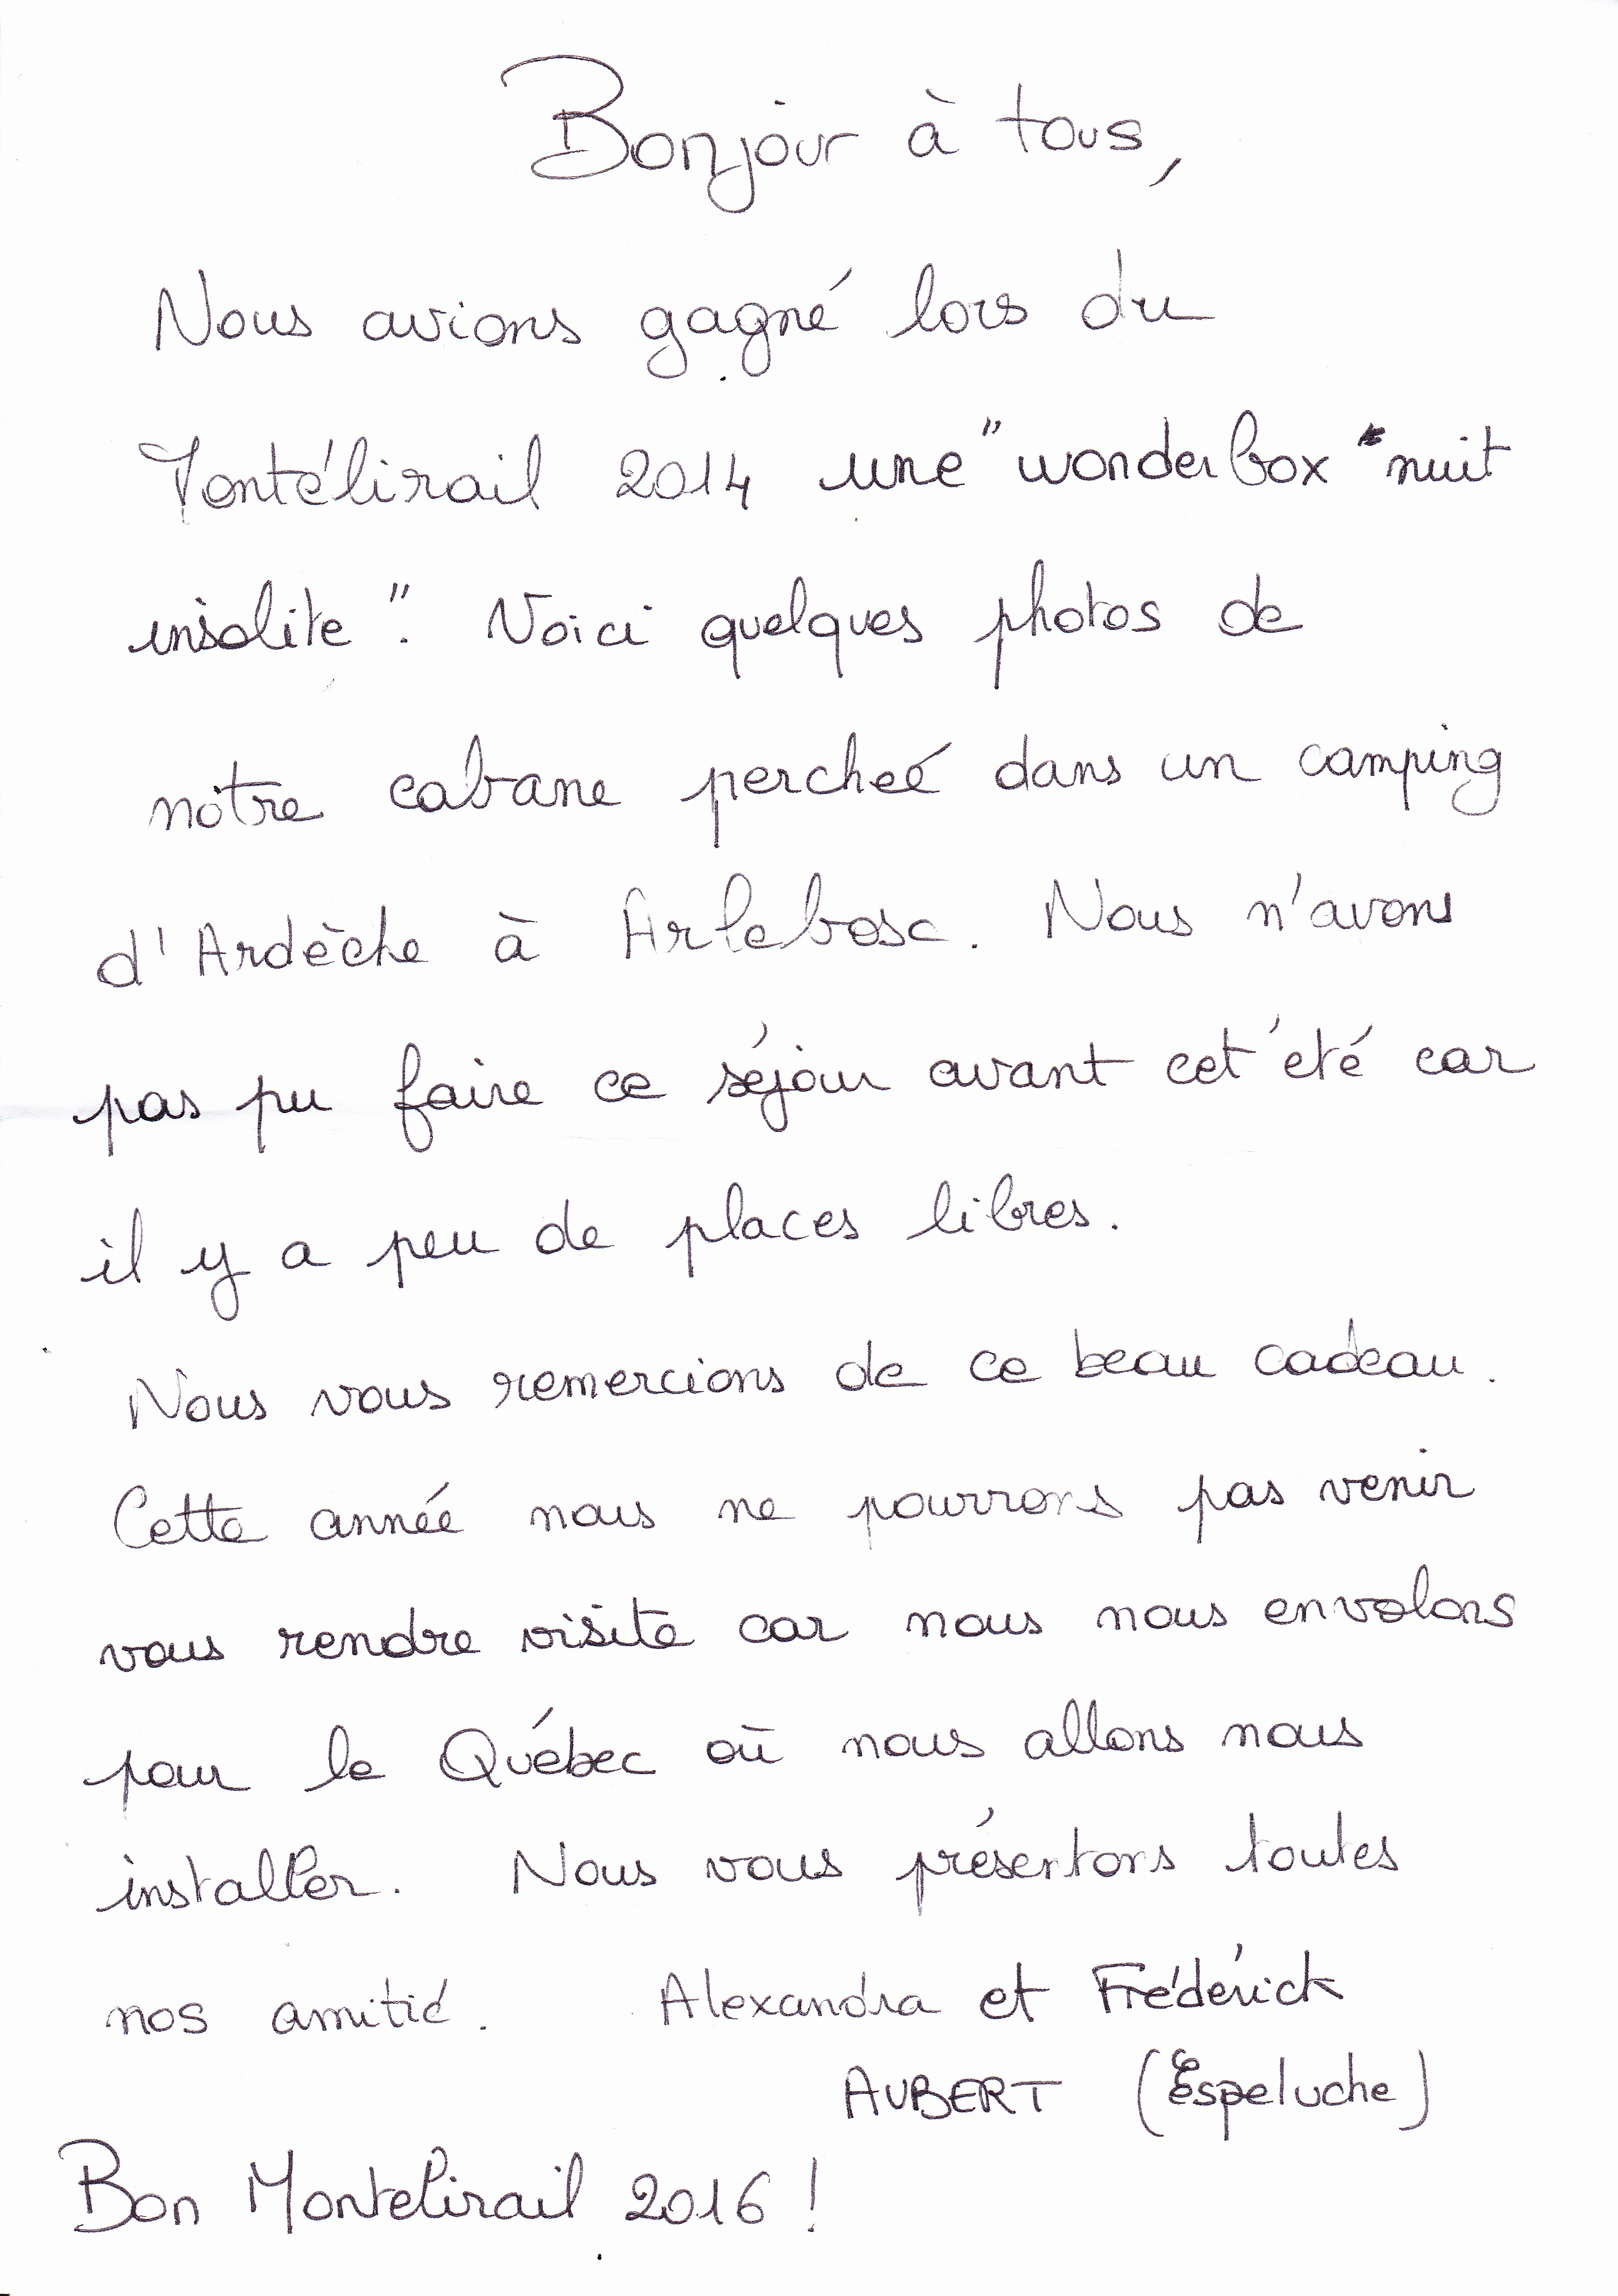 Bonjour à tous,
Nous avions gagné lors du
Montélirail 2014 une "wonderbox "nuit
insolite". Voici quelques photos de
notre cabane percheé dans un camping
d'Ardèche à Arlebosc. Nous n'avons
pas pu faire ce séjour avant cet été car
il y a peu de places libres.
Nous vous remercions de ce beau cadeau.
Cette année nous ne pourrons pas venir
vous rendre visite car nous nous envolons
pour le Québec où nous allons nous
installer. Nous vous présentons toutes
nos amitié. Alexandra et Frédérick
AUBERT (Espeluche)
Bon Montelirail 2016 !